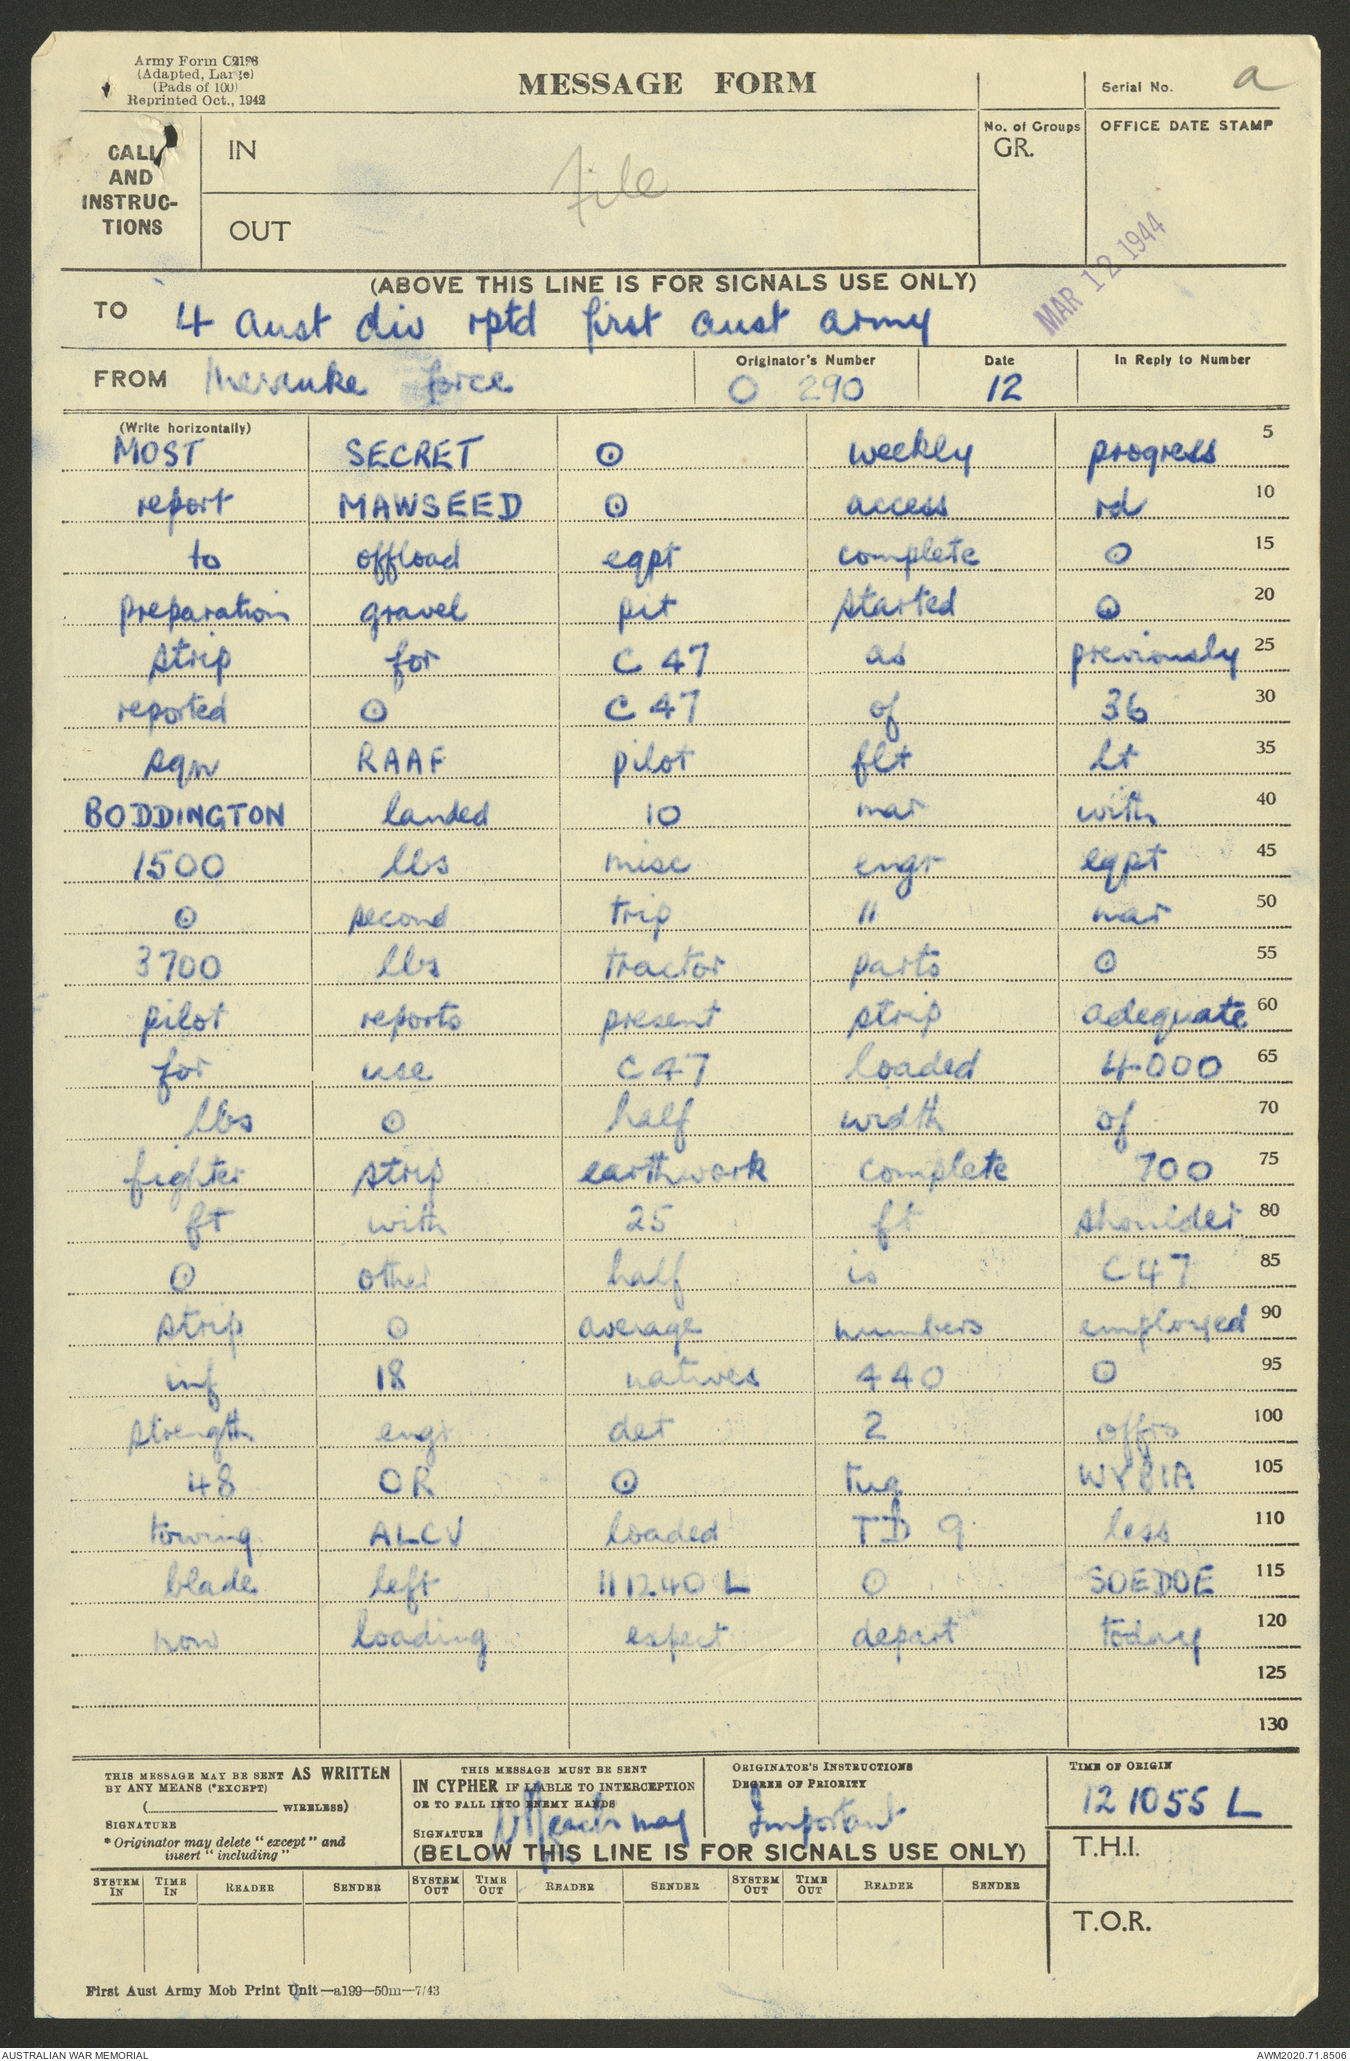 Army Form C2128
(Adapted, Large)
(Pads of 100)
Reprinted Oct., 1942
MESSAGE FORM
Serial No. a
CALL AND INSTRUC-TIONS
IN
OUT
file
No. of Groups
GR.
OFFICE DATE STAMP
MAR 12 1944
(ABOVE THIS LINE IS FOR SIGNALS USE ONLY)
TO 4 aust div rptd first aust army
FROM Merauke force
Originator's Number
O 290
Date
12
In Reply to Number
(Write horizontally)
MOST SECRET ⊙ weekly progress 5
report MAWSEED ⊙ access rd 10
to offload eqpt complete ⊙ 15
preparation gravel pit started ⊙ 20
strip for C 47 as previously 25
reported ⊙ C 47 of 36 30
sqn RAAF pilot flt lt 35
BODDINGTON landed 10 mar with 40
1500 lbs misc engr eqpt 45
⊙ second trip 11 mar 50
3700 lbs tractor parts ⊙ 55
pilot reports present strip adequate 60
for use C 47 loaded 4000 65
lbs ⊙ half width of 70
fighter strip earthwork complete 700 75
ft with 25 ft shoulder 80
⊙ other half is C 47 85
strip ⊙ average numbers employed 90
inf 18 natives 440 ⊙ 95
strength engr det 2 offrs 100
48 OR ⊙ tug WYBIA 105
towing ALCV loaded TD 9 less 110
blade left 111240 L ⊙ SOEDOE 115
now loading expect depart today 120
125
130
THIS MESSAGE MAY BE SENT AS WRITTEN
BY ANY MEANS (*EXCEPT)
(__________ WIRELESS)
SIGNATURE
* Originator may delete "except" and
insert "including"
THIS MESSAGE MUST BE SENT
IN CYPHER IF LIABLE TO INTERCEPTION
OR TO FALL INTO ENEMY HANDS
SIGNATURE
ORIGINATOR'S INSTRUCTIONS
DEGREE OF PRIORITY
Important
TIME OF ORIGIN
121055 L
(BELOW THIS LINE IS FOR SIGNALS USE ONLY)
T.H.I.
SYSTEM IN TIME IN READER SENDER SYSTEM OUT TIME OUT READER SENDER SYSTEM OUT TIME OUT READER SENDER
T.O.R.
First Aust Army Mob Print Unit—a199—50m—7/43
AUSTRALIAN WAR MEMORIAL
AWM2020.71.8506